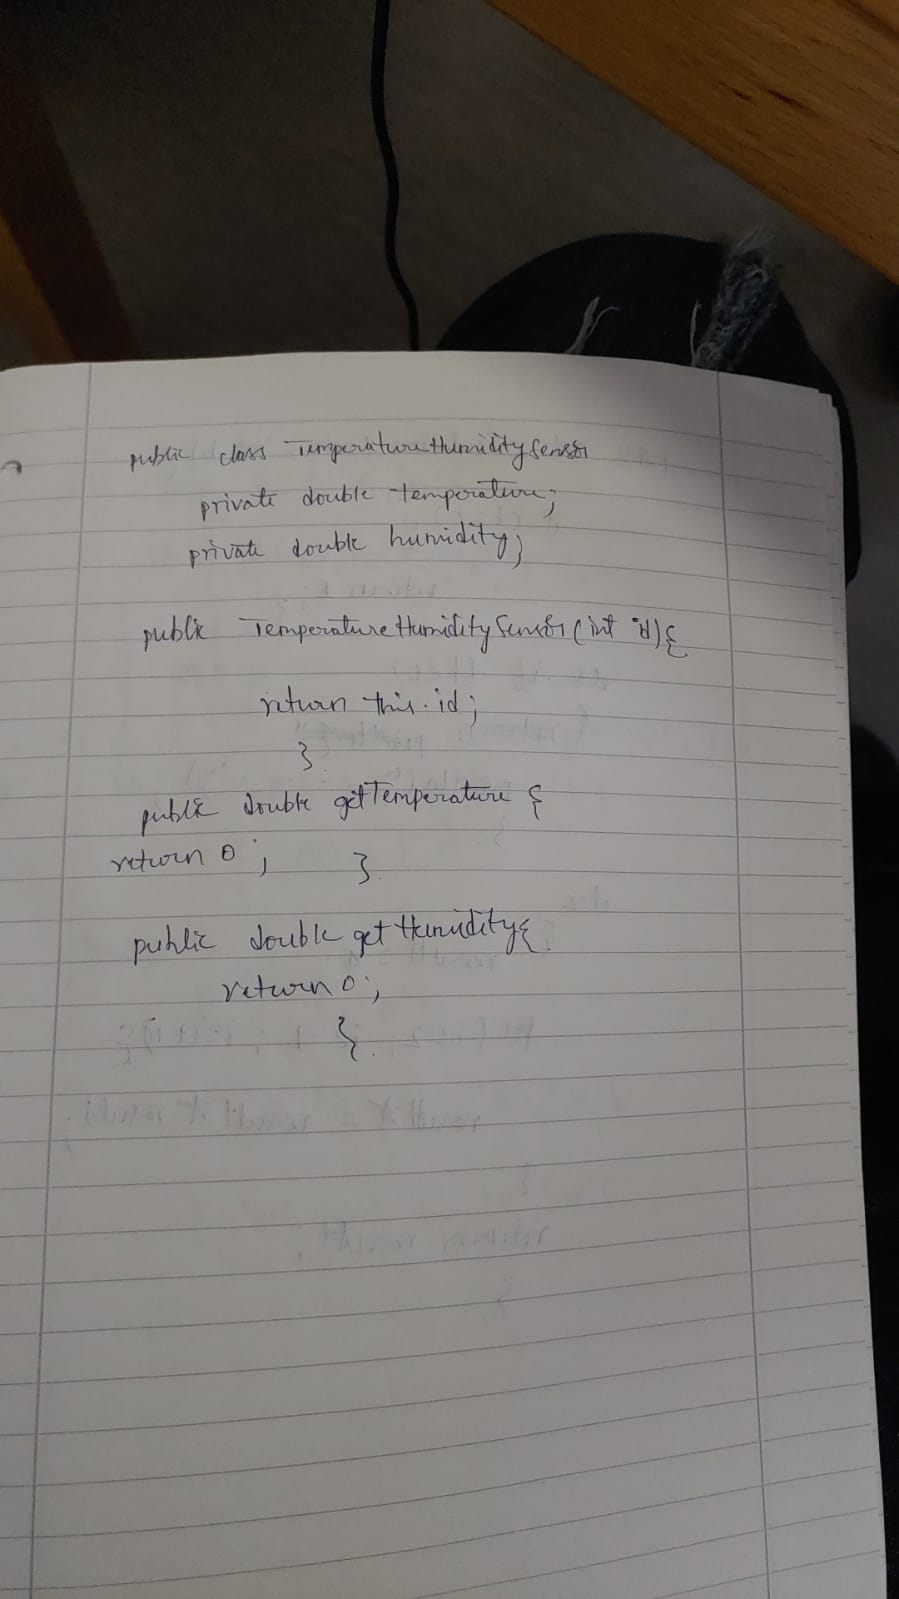 public class TemperatureHumiditySensor
private double temperature;
private double humidity;
public TemperatureHumiditySensor(int id){
return this.id;
}
public double getTemperature {
return 0;
}
public double getHumidity{
return 0;
}